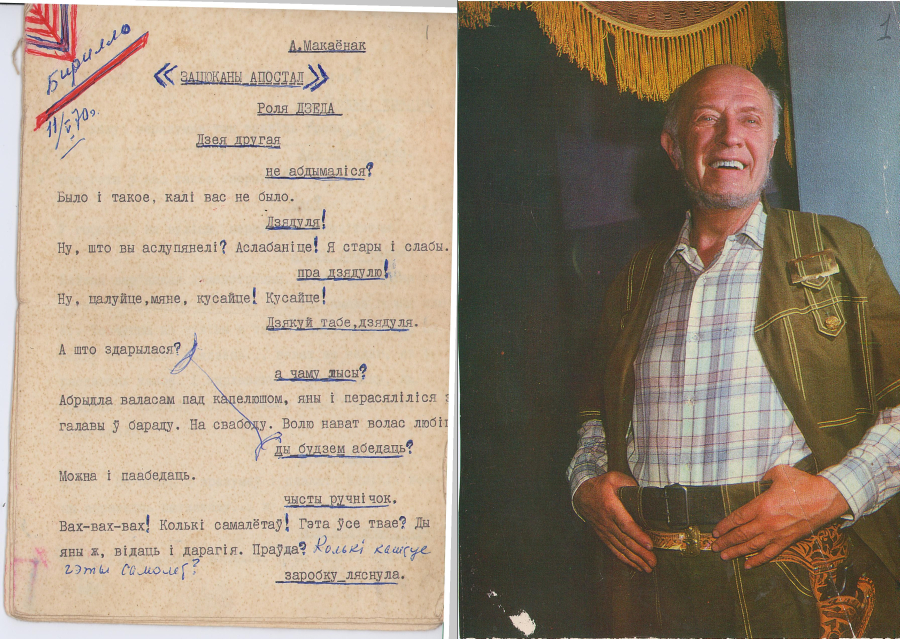 Бирилло
11/V 70г.
А.Макаёнак
« ЗАЦЮКАНЫ АПОСТАЛ »
Роля ДЗЕДА
Дзея другая
не абдымаліся?
Было і такое, калі вас не было.
Дзядуля!
Ну, што вы аслупянелі? Аслабаніце! Я стары і слабы.
пра дзядулю!
Ну, цалуйце,мяне, кусайце! Кусайце!
Дзякуй табе,дзядуля.
А што здарылася?
а чаму лысы?
Абрыдла валасам пад капелюшом, яны і перасяліліся з
галавы ў бараду. На свабоду. Волю нават волас любі
ды будзем абедаць?
Можна і паабедаць.
чысты ручнічок.
Вах-вах-вах! Колькі самалётаў! Гэта ўсе твае? Ды
яны ж, відаць і дарагія. Праўда? Колькі каштуе
гэты самолет?
заробку ляснула.
1